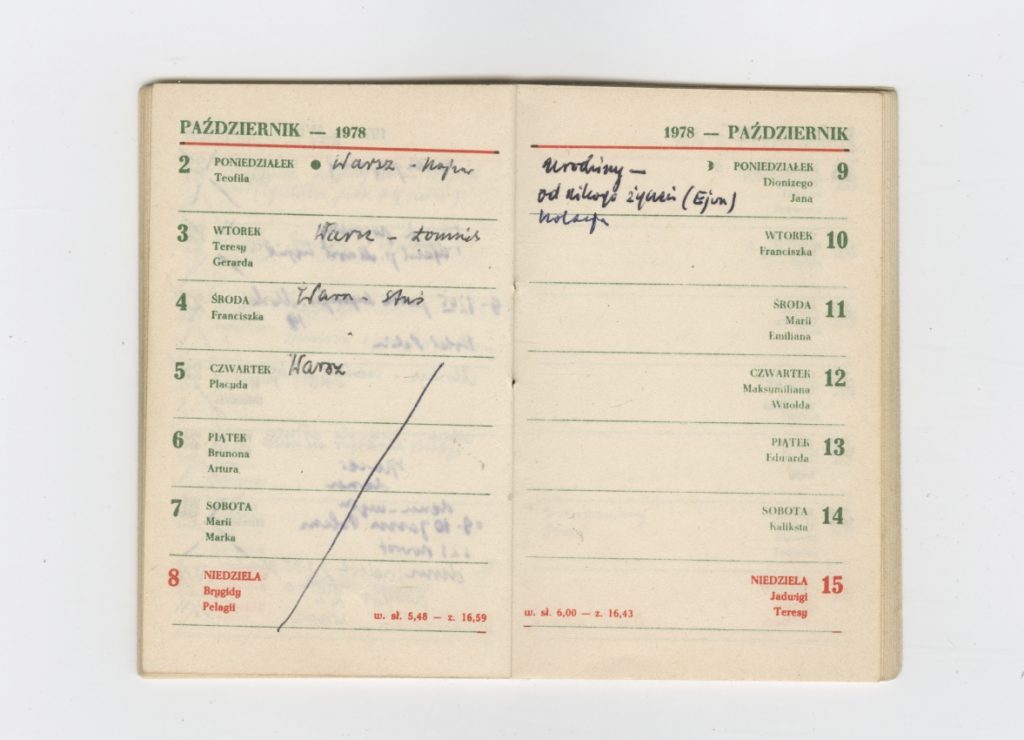 PAŹDZIERNIK — 1978
2 PONIEDZIAŁEK Warsz -
Teofila
3 WTOREK Warsz -
Teresy
Gerarda
4 ŚRODA
Franciszka
5 CZWARTEK Warsz
Placyda
6 PIĄTEK
Brunona
Artura
7 SOBOTA
Marii
Marka
8 NIEDZIELA
Brygidy
Pelagii
w. sł. 5,48 — z. 16,59
1978 — PAŹDZIERNIK
Urodziny — PONIEDZIAŁEK 9
od nikogo życzeń Dionizego
Jana
kolacja
WTOREK 10
Franciszka
ŚRODA 11
Marii
Emiliana
CZWARTEK 12
Maksymiliana
Witolda
PIĄTEK 13
Edwarda
SOBOTA 14
Kaliksta
NIEDZIELA 15
Jadwigi
Teresy
w. sł. 6,00 — z. 16,43